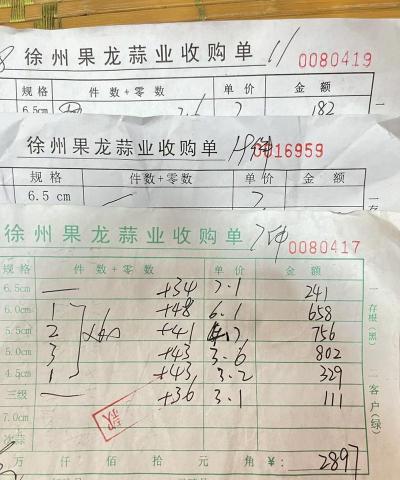 徐州果龙蒜业收购单 11 0080419
规格 件数+零数 单价 金额
6.5cm 182
徐州果龙蒜业收购单 0016959
规格 件数+零数 单价 金额
6.5 cm —
徐州果龙蒜业收购单 0080417
规格 件数+零数 单价 金额
6.5cm — +34 7.1 241
6.0cm 1 +48 6.1 658
5.5cm 2 +41 756
5.0cm 3 +43 3.6 802
4.5cm 1 +43 3.2 329
三级 — +36 3.1 111
7.0cm
次蒜
万 仟 佰 拾 元 角 ¥: 2897
一存根(黑)
二客户(绿)